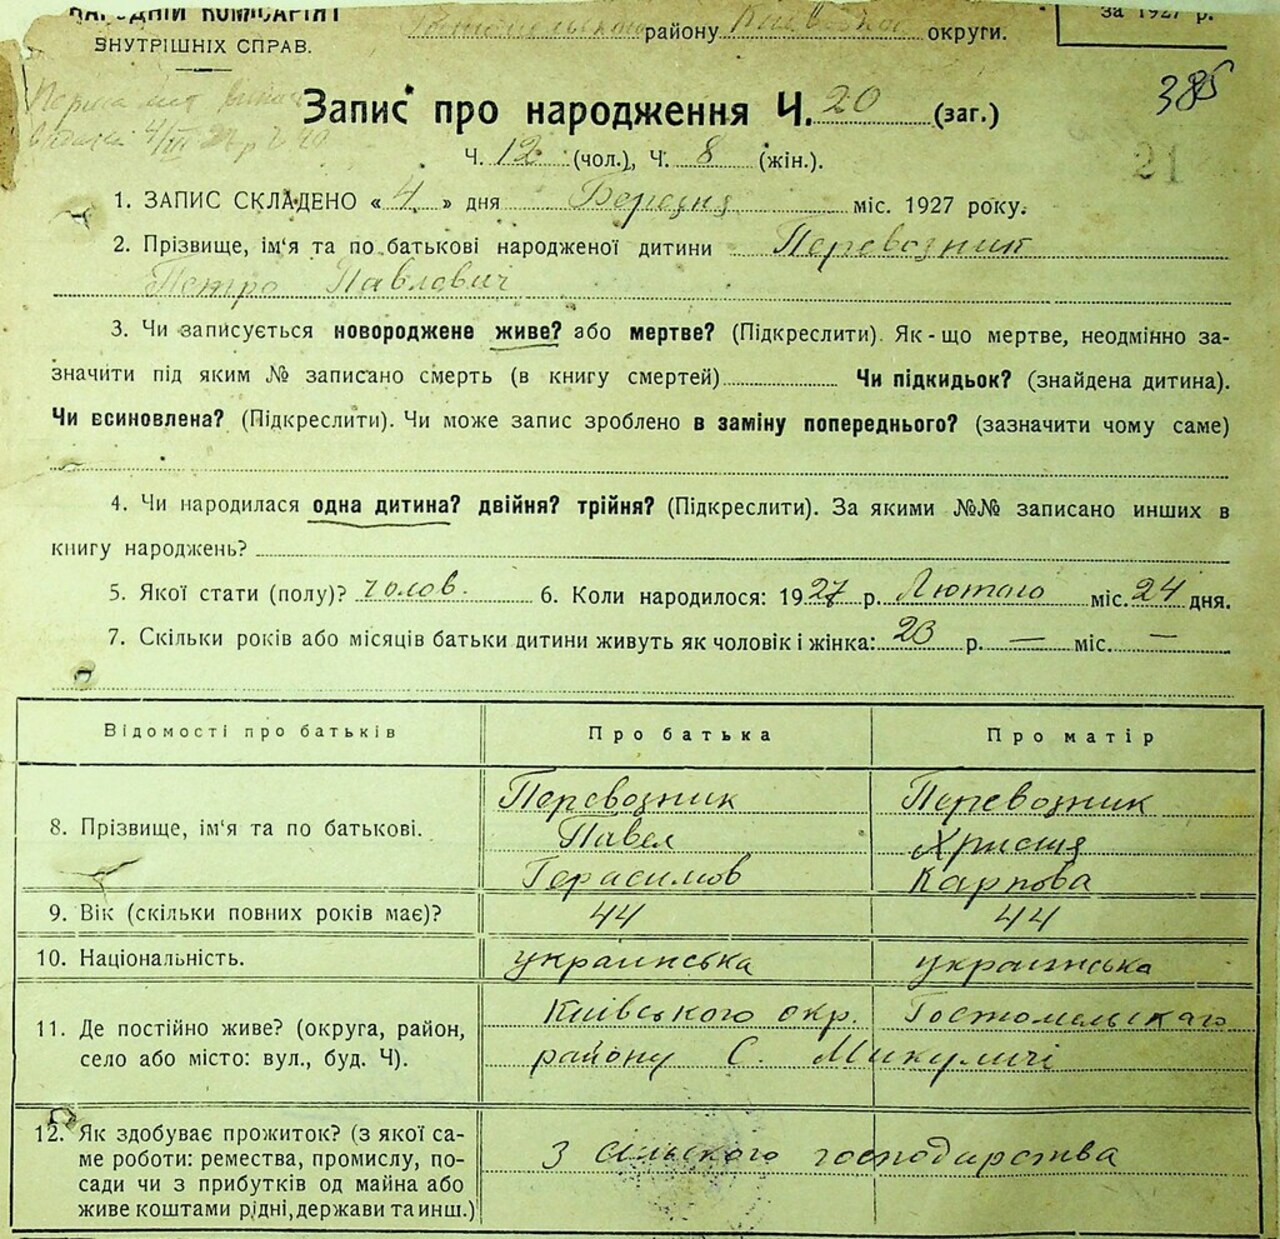 НАРОДНІЙ КОМІСАРІЯТ
за 1927 р.
Гостомельского району Київской округи.
ВНУТРІШНІХ СПРАВ.
385
Запис про народження Ч. 20 (заг.)
Ч. 12 (чол.), Ч. 8 (жін.).
21
1. ЗАПИС СКЛАДЕНО « 4 » дня Березня міс. 1927 року.
2. Прізвище, ім‘я та по батькові народженої дитини Перевозник
Петро Павлович
3. Чи записується новороджене живе? або мертве? (Підкреслити). Як-що мертве, неодмінно за-
значіти під яким № записано смерть (в книгу смертей) Чи підкидьок? (знайдена дитина).
Чи всиновлена? (Підкреслити). Чи може запис зроблено в заміну попереднього? (зазначити чому саме)
4. Чи народилася одна дитина? двійня? трійня? (Підкреслити). За якими №№ записано инших в
книгу народжень?
5. Якої стати (полу)? голов. 6. Коли народилося: 1927 р. Лютого міс. 24 дня.
7. Скільки років або місяців батьки дитини живуть як чоловік і жінка: 23 р. — міс. —
Відомості про батьків Про батька Про матір
Перевозник Перевозник
8. Прізвище, ім‘я та по батькові. Павел Христя
Герасимов Карпова
9. Вік (скільки повних років має)? 44 44
10. Національність. украинська украинська
11. Де постійно живе? (округа, район, Київського окр. Гостомельскаго
село або місто: вул., буд. Ч). району С. Микуличі
12. Як здобуває прожиток? (з якої са-
ме роботи: ремества, промислу, по- З сільского господарства
сади чи з прибутків од майна або
живе коштами рідні, держави та инш.)